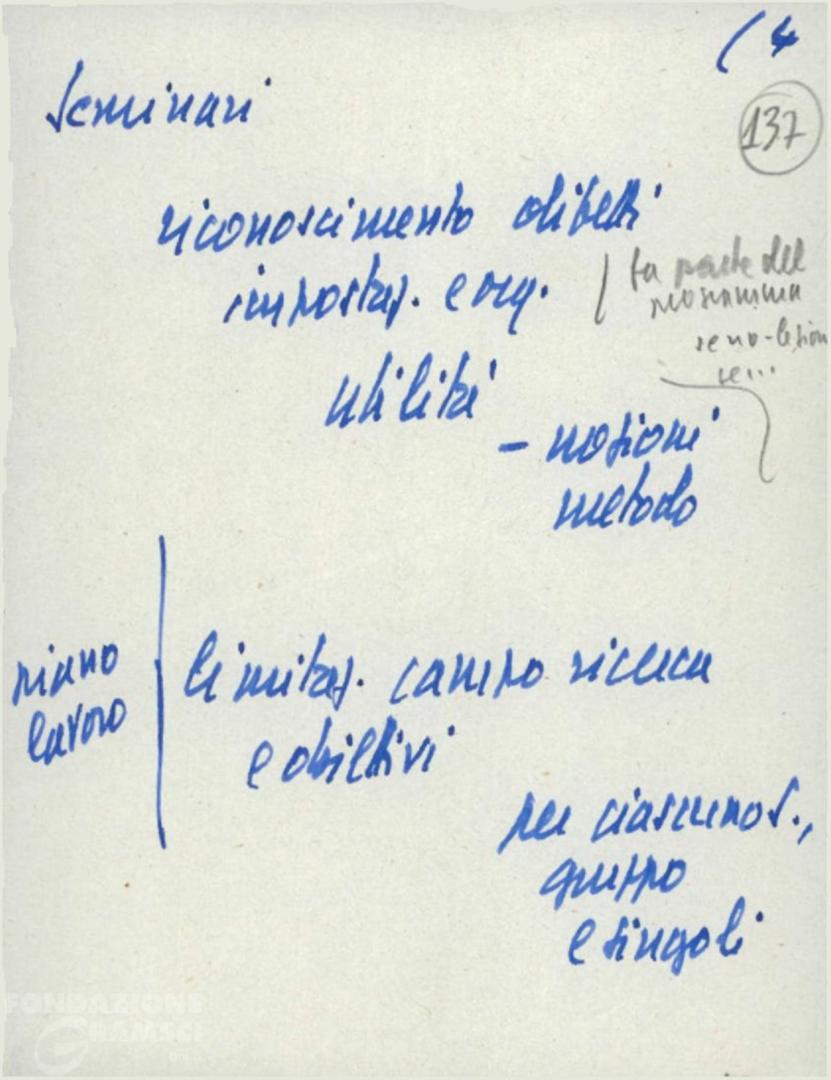 ( 4
137
Seminari
riconoscimento difetti
impostaz. e org.
fa parte del
programma
se no - lezioni
se...
utilità
- nozioni
metodo
piano
lavoro
limitaz. campo ricerca
e obiettivi
per ciascuno s.,
gruppo
e singoli
FONDAZIONE
GRAMSCI